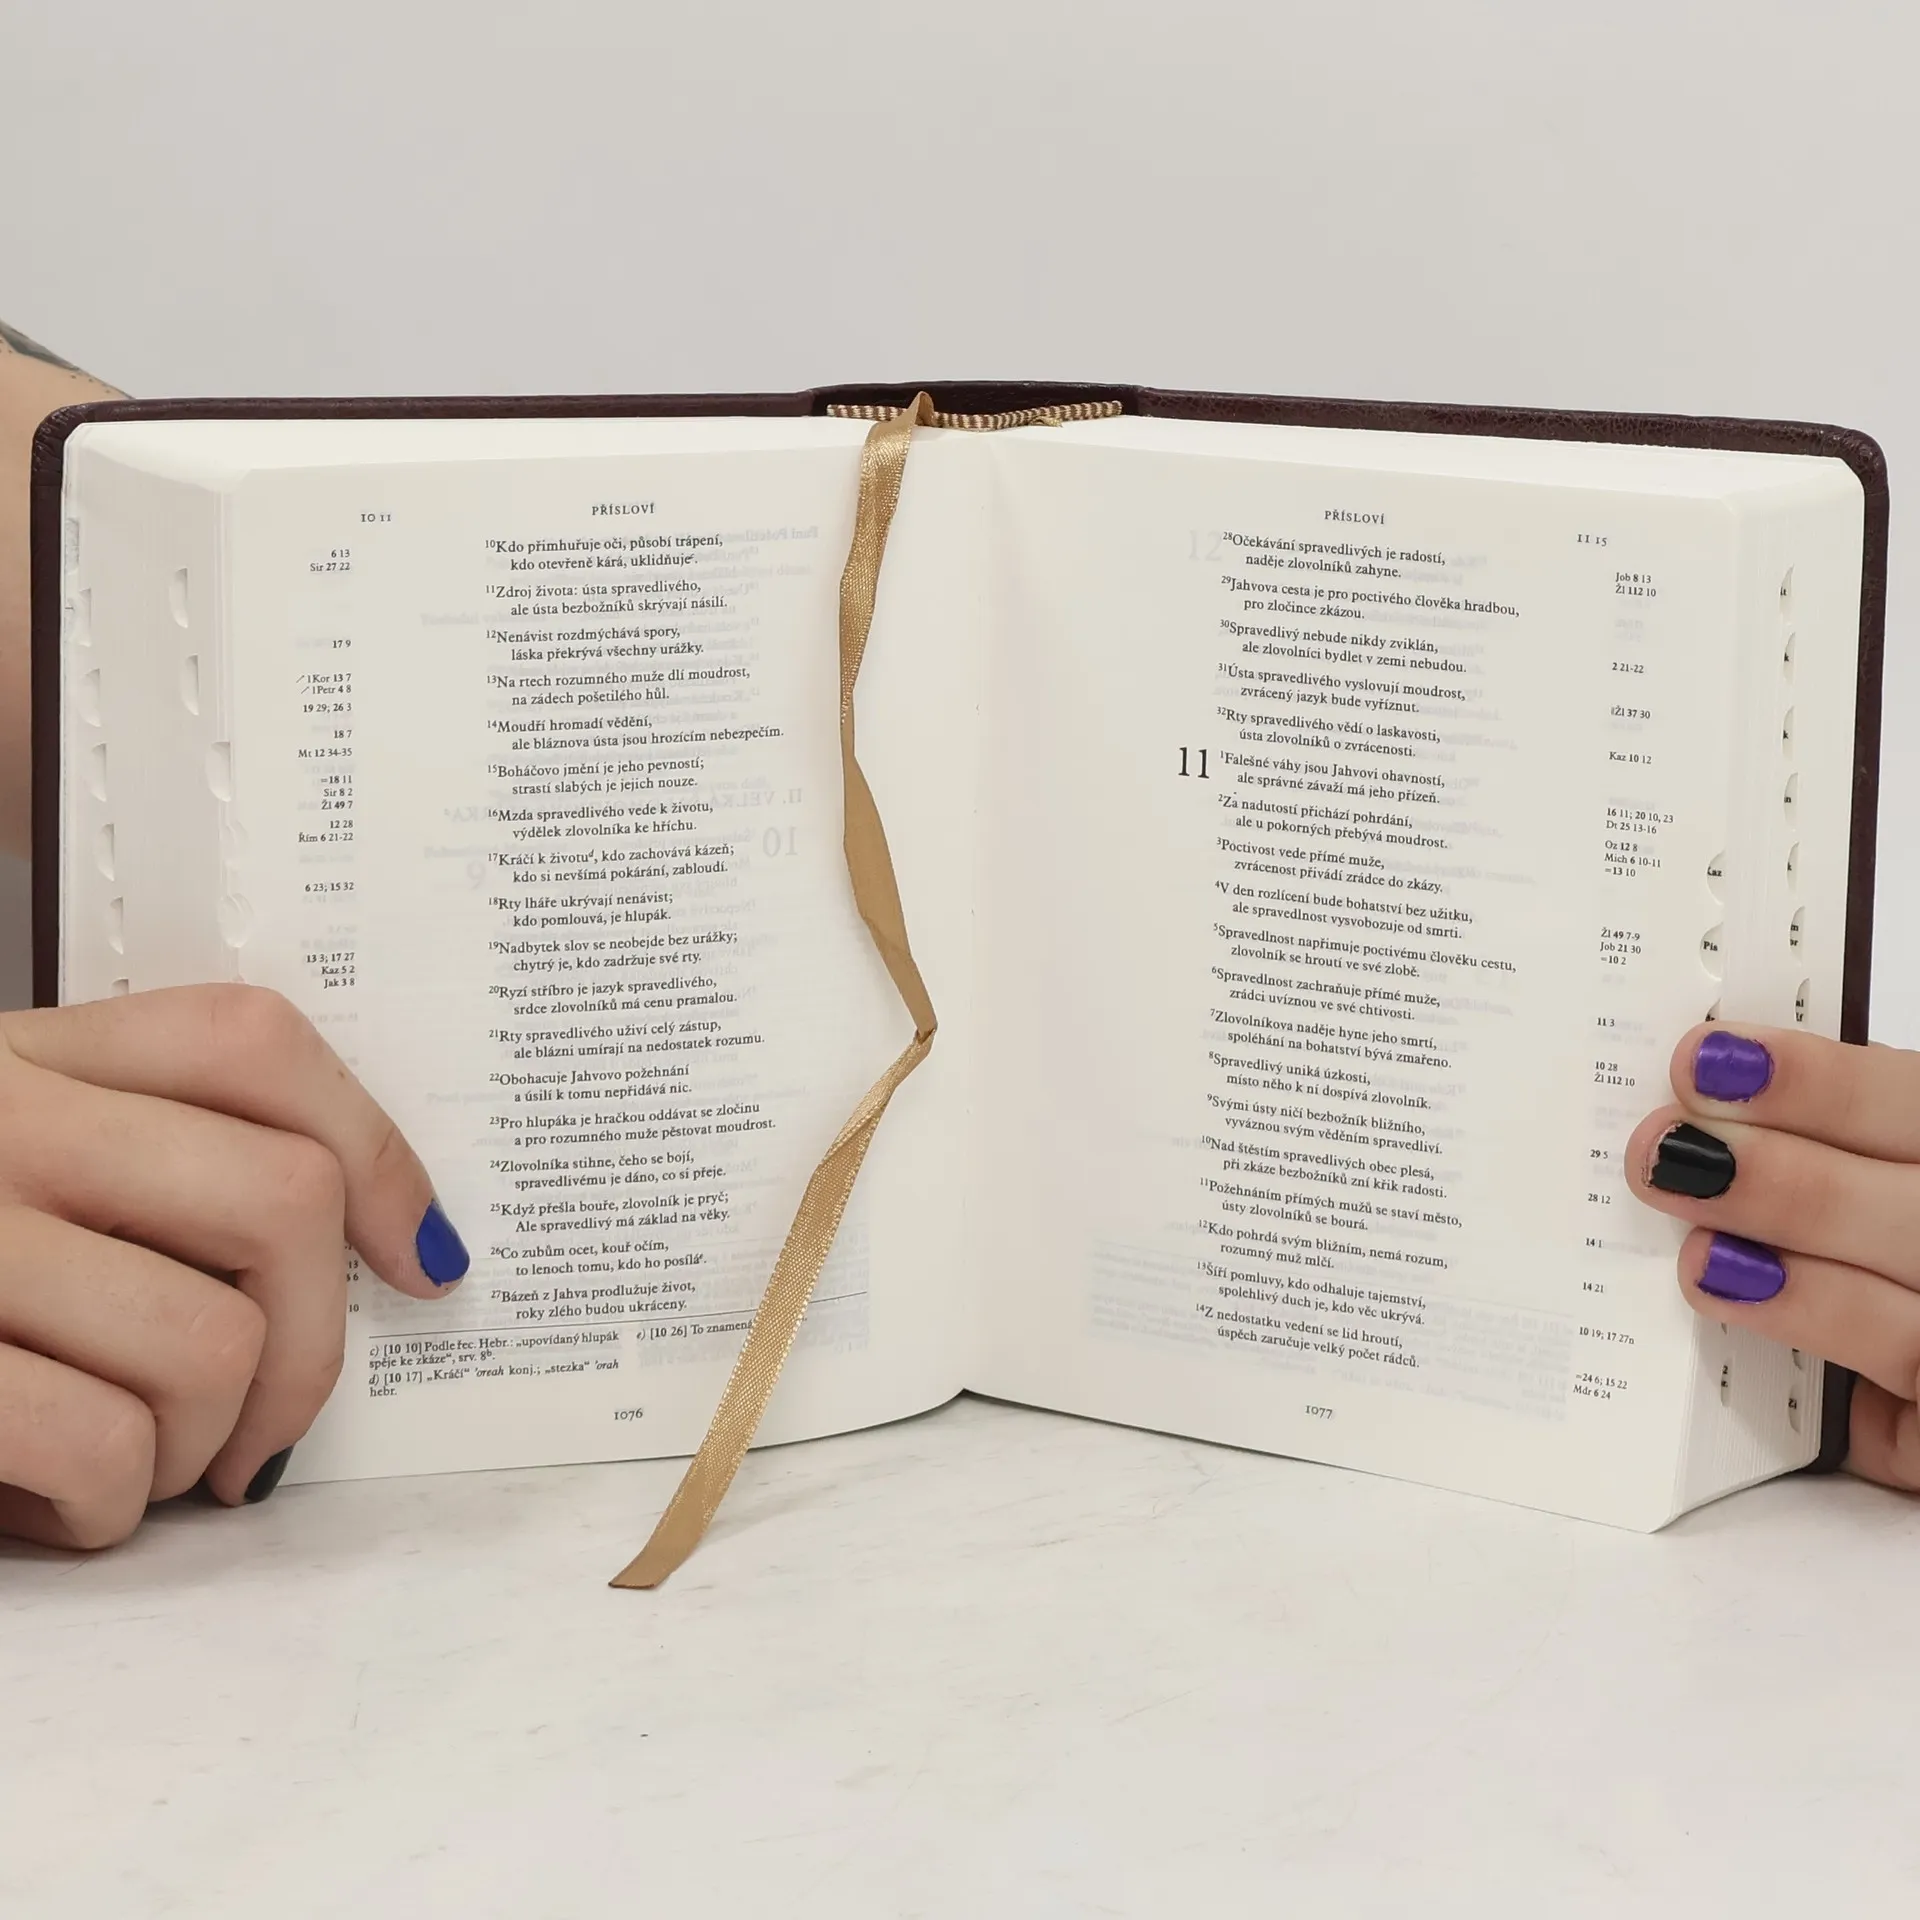 10 11
PŘÍSLOVÍ
6 13
Sir 27 22
17 9
↗1Kor 13 7
↗1Petr 4 8
19 29; 26 3
18 7
Mt 12 34-35
=18 11
Sir 8 2
Žl 49 7
12 28
Řím 6 21-22
6 23; 15 32
13 3; 17 27
Kaz 5 2
Jak 3 8
10Kdo přimhuřuje oči, působí trápení,
kdo otevřeně kárá, uklidňujeᶜ.
11Zdroj života: ústa spravedlivého,
ale ústa bezbožníků skrývají násilí.
12Nenávist rozdmýchává spory,
láska překrývá všechny urážky.
13Na rtech rozumného muže dlí moudrost,
na zádech pošetilého hůl.
14Moudří hromadí vědění,
ale bláznova ústa jsou hrozícím nebezpečím.
15Boháčovo jmění je jeho pevností;
strastí slabých je jejich nouze.
16Mzda spravedlivého vede k životu,
výdělek zlovolníka ke hříchu.
17Kráčí k životuᵈ, kdo zachovává kázeň;
kdo si nevšímá pokárání, zabloudí.
18Rty lháře ukrývají nenávist;
kdo pomlouvá, je hlupák.
19Nadbytek slov se neobejde bez urážky;
chytrý je, kdo zadržuje své rty.
20Ryzí stříbro je jazyk spravedlivého,
srdce zlovolníků má cenu pramalou.
21Rty spravedlivého uživí celý zástup,
ale blázni umírají na nedostatek rozumu.
22Obohacuje Jahvovo požehnání
a úsilí k tomu nepřidává nic.
23Pro hlupáka je hračkou oddávat se zločinu
a pro rozumného muže pěstovat moudrost.
24Zlovolníka stihne, čeho se bojí,
spravedlivému je dáno, co si přeje.
25Když přešla bouře, zlovolník je pryč;
Ale spravedlivý má základ na věky.
26Co zubům ocet, kouř očím,
to lenoch tomu, kdo ho posíláᵉ.
27Bázeň z Jahva prodlužuje život,
roky zlého budou ukráceny.
c) [10 10] Podle řec. Hebr.: „upovídaný hlupák
spěje ke zkáze“, srv. 8ᵇ.
d) [10 17] „Kráčí“ ’oreah konj.; „stezka“ ’orah
hebr.
e) [10 26] To znamená
1076
PŘÍSLOVÍ
11 15
28Očekávání spravedlivých je radostí,
naděje zlovolníků zahyne.
29Jahvova cesta je pro poctivého člověka hradbou,
pro zločince zkázou.
30Spravedlivý nebude nikdy zviklán,
ale zlovolníci bydlet v zemi nebudou.
31Ústa spravedlivého vyslovují moudrost,
zvrácený jazyk bude vyříznut.
32Rty spravedlivého vědí o laskavosti,
ústa zlovolníků o zvrácenosti.
11 1Falešné váhy jsou Jahvovi ohavností,
ale správné závaží má jeho přízeň.
2Za nadutostí přichází pohrdání,
ale u pokorných přebývá moudrost.
3Poctivost vede přímé muže,
zvrácenost přivádí zrádce do zkázy.
4V den rozlícení bude bohatství bez užitku,
ale spravedlnost vysvobozuje od smrti.
5Spravedlnost napřimuje poctivému člověku cestu,
zlovolník se hroutí ve své zlobě.
6Spravedlnost zachraňuje přímé muže,
zrádci uvíznou ve své chtivosti.
7Zlovolníkova naděje hyne jeho smrtí,
spoléhání na bohatství bývá zmařeno.
8Spravedlivý uniká úzkosti,
místo něho k ní dospívá zlovolník.
9Svými ústy ničí bezbožník bližního,
vyváznou svým věděním spravedliví.
10Nad štěstím spravedlivých obec plesá,
při zkáze bezbožníků zní křik radosti.
11Požehnáním přímých mužů se staví město,
ústy zlovolníků se bourá.
12Kdo pohrdá svým bližním, nemá rozum,
rozumný muž mlčí.
13Šíří pomluvy, kdo odhaluje tajemství,
spolehlivý duch je, kdo věc ukrývá.
14Z nedostatku vedení se lid hroutí,
úspěch zaručuje velký počet rádců.
Job 8 13
Žl 112 10
2 21-22
Žl 37 30
Kaz 10 12
16 11; 20 10, 23
Dt 25 13-16
Oz 12 8
Mich 6 10-11
=13 10
Žl 49 7-9
Job 21 30
=10 2
11 3
10 28
Žl 112 10
29 5
28 12
14 1
14 21
10 19; 17 27n
=24 6; 15 22
Mdr 6 24
1077
Kaz
Pís